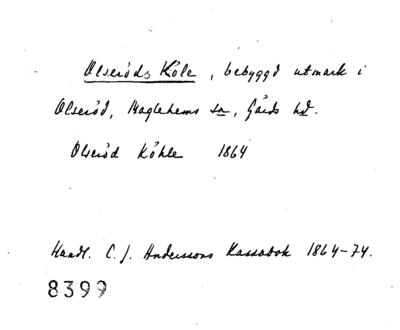 Olseröds Köle, bebyggd utmark i
Olseröd, Maglehems sn, Gärds hd.
Olseröd Köhle 1864
Handl. C. J. Anderssons Kassabok 1864-74.
8399